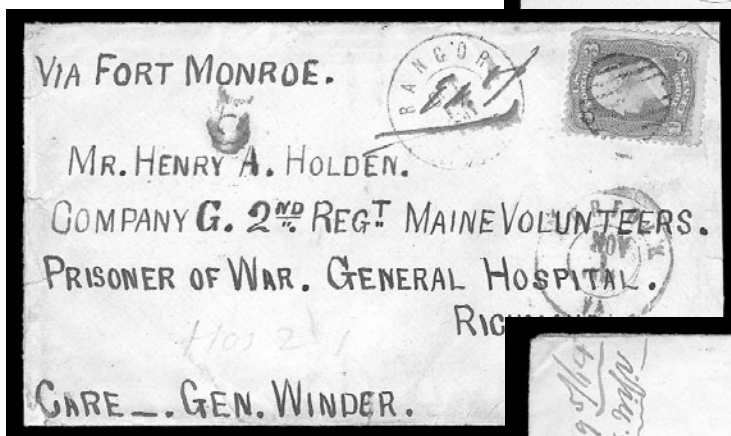 VIA FORT MONROE.
BANGOR
MR. HENRY A. HOLDEN.
COMPANY G. 2ND REGT. MAINE VOLUNTEERS.
NOV
PRISONER OF WAR. GENERAL HOSPITAL.
VA
Hos 2
CARE _. GEN. WINDER.